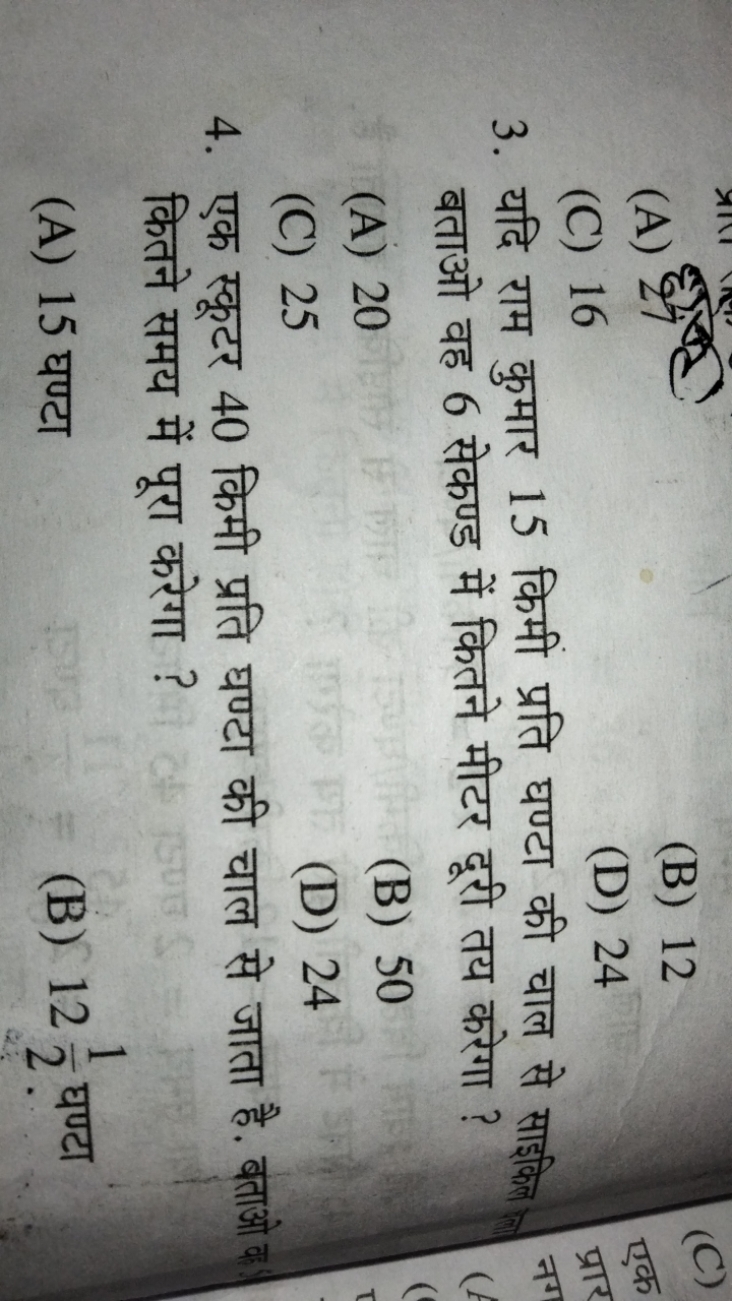 (A) 27 (B) 12
(C) 16 (D) 24
3. यदि राम कुमार 15 किमी प्रति घण्टा की चाल से साइकिल
बताओ वह 6 सेकण्ड में कितने मीटर दूरी तय करेगा ?
(A) 20 (B) 50
(C) 25 (D) 24
4. एक स्कूटर 40 किमी प्रति घण्टा की चाल से जाता है. बताओ
कितने समय में पूरा करेगा ?
(A) 15 घण्टा (B) 12 1/2 घण्टा
(C)
एक
प्रार
नग